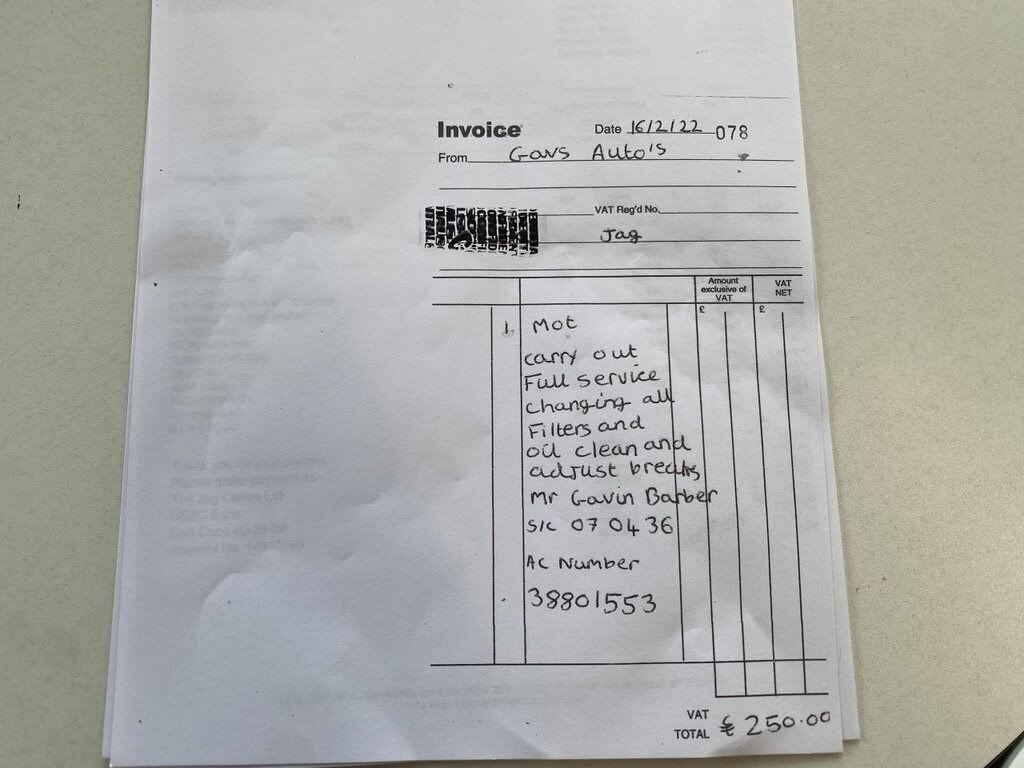 Invoice Date 16/2/22 078
From Gavs Auto's
VAT Reg'd No.
Jag
Amount exclusive of VAT VAT NET
£ £
1 Mot
carry out
Full service
changing all
Filters and
oil clean and
adjust breaks
Mr Gavin Barber
S/c 07 04 36
Ac Number
38801553
VAT
TOTAL £ 250.00